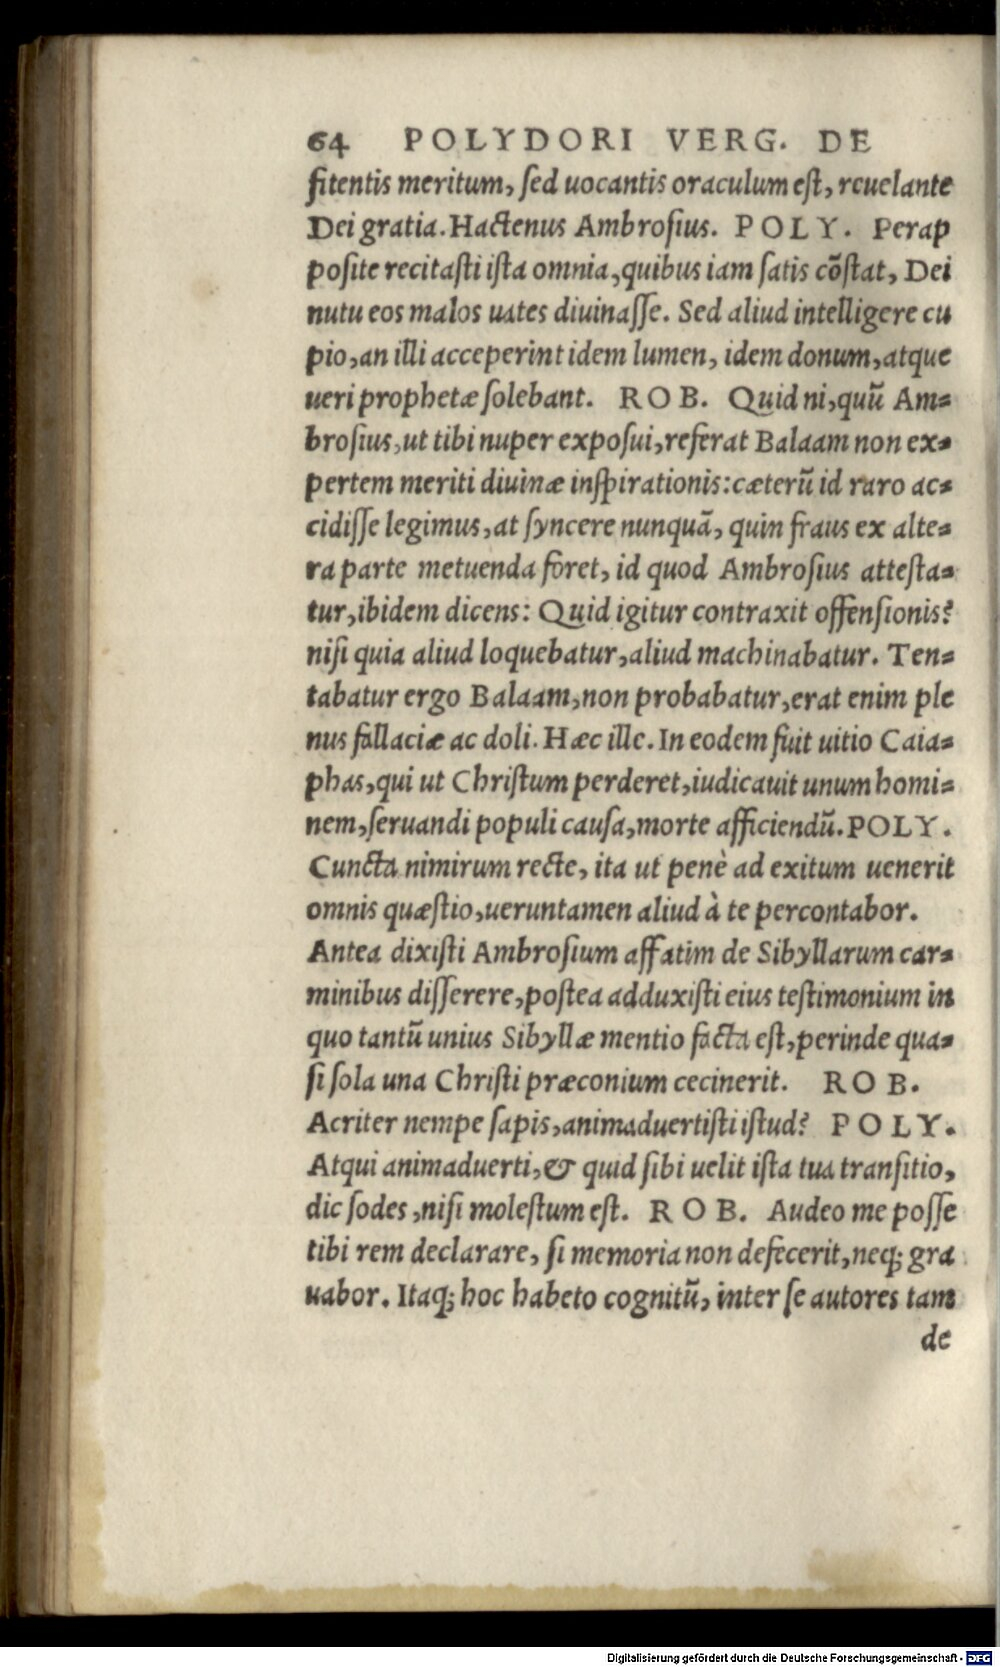 64 POLYDORI VERG. DE
fitentis meritum, sed uocantis oraculum est, reuelante
Dei gratia. Hactenus Ambrosius. POLY. Perap
posite recitasti ista omnia, quibus iam satis cõstat, Dei
nutu eos malos uates diuinasse. Sed aliud intelligere cu
pio, an illi acceperint idem lumen, idem donum, atque
ueri prophetæ solebant. ROB. Quid ni, quũ Am=
brosius, ut tibi nuper exposui, referat Balaam non ex=
pertem meriti diuinæ inspirationis: cæterũ id raro ac=
cidisse legimus, at syncere nunquã, quin fraus ex alte=
ra parte metuenda foret, id quod Ambrosius attesta=
tur, ibidem dicens: Quid igitur contraxit offensionis?
nisi quia aliud loquebatur, aliud machinabatur. Ten=
tabatur ergo Balaam, non probabatur, erat enim ple
nus fallaciæ ac doli. Hæc ille. In eodem fuit uitio Caia=
phas, qui ut Christum perderet, iudicauit unum homi=
nem, seruandi populi causa, morte afficiendũ. POLY.
Cuncta nimirum recte, ita ut penè ad exitum uenerit
omnis quæstio, ueruntamen aliud à te percontabor.
Antea dixisti Ambrosium affatim de Sibyllarum car=
minibus disserere, postea adduxisti eius testimonium in
quo tantũ unius Sibyllæ mentio facta est, perinde qua=
si sola una Christi præconium cecinerit. ROB.
Acriter nempe sapis, animaduertisti istud? POLY.
Atqui animaduerti, & quid sibi uelit ista tua transitio,
dic sodes, nisi molestum est. ROB. Audeo me posse
tibi rem declarare, si memoria non defecerit, neq; gra
uabor. Itaq; hoc habeto cognitũ, inter se autores tam
de
Digitalisierung gefördert durch die Deutsche Forschungsgemeinschaft - DFG